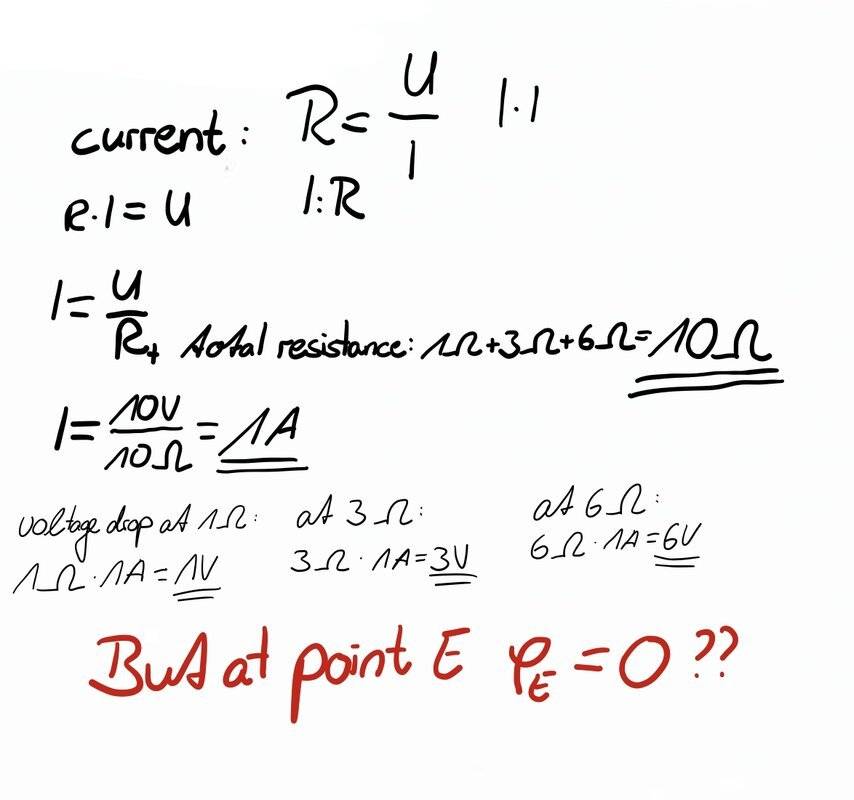 current: R = U/I |·I
R·I = U |:R
I = U/R₊ total resistance: 1Ω+3Ω+6Ω=10Ω
I = 10V/10Ω = 1A
voltage drop at 1Ω: at 3Ω: at 6Ω:
1Ω·1A=1V 3Ω·1A=3V 6Ω·1A=6V
But at point E φ_E = 0 ??